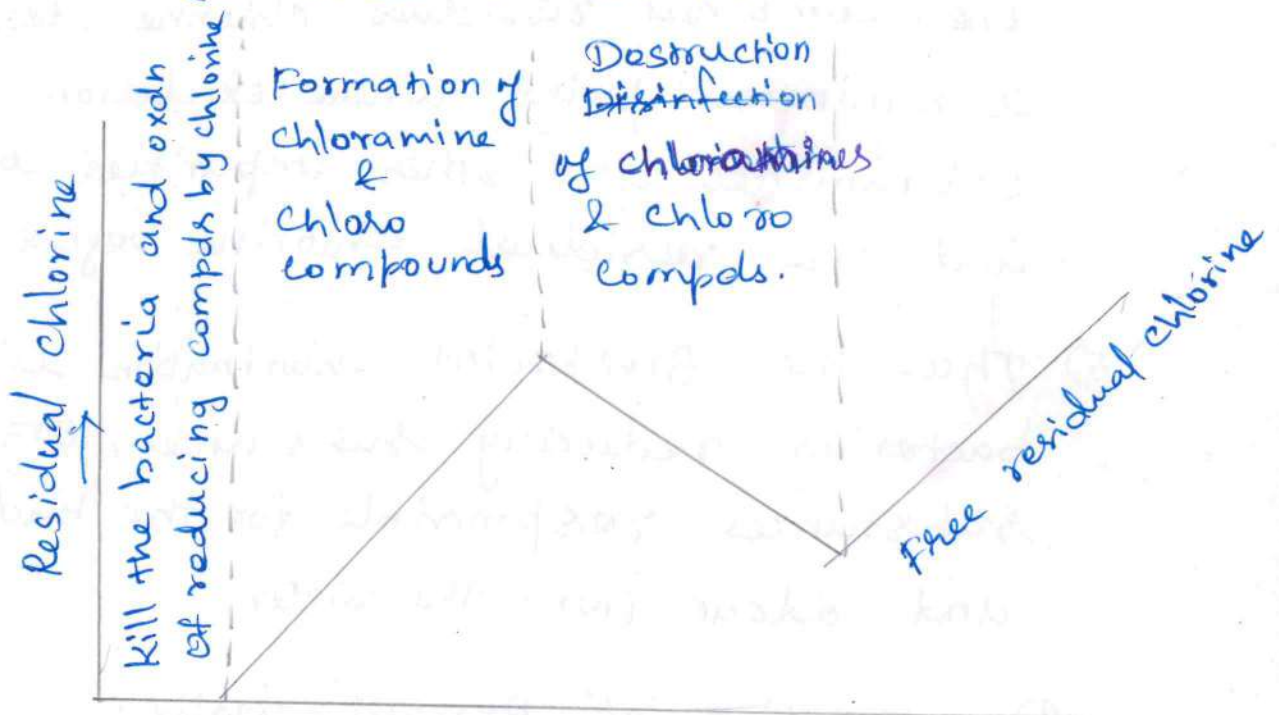 Residual chlorine
Kill the bacteria and oxdn
of reducing compds by chlorine
Formation of
chloramine
&
chloro
compounds
Dostruction
Disinfection
of chloramines
& chloro
compds.
Free residual chlorine